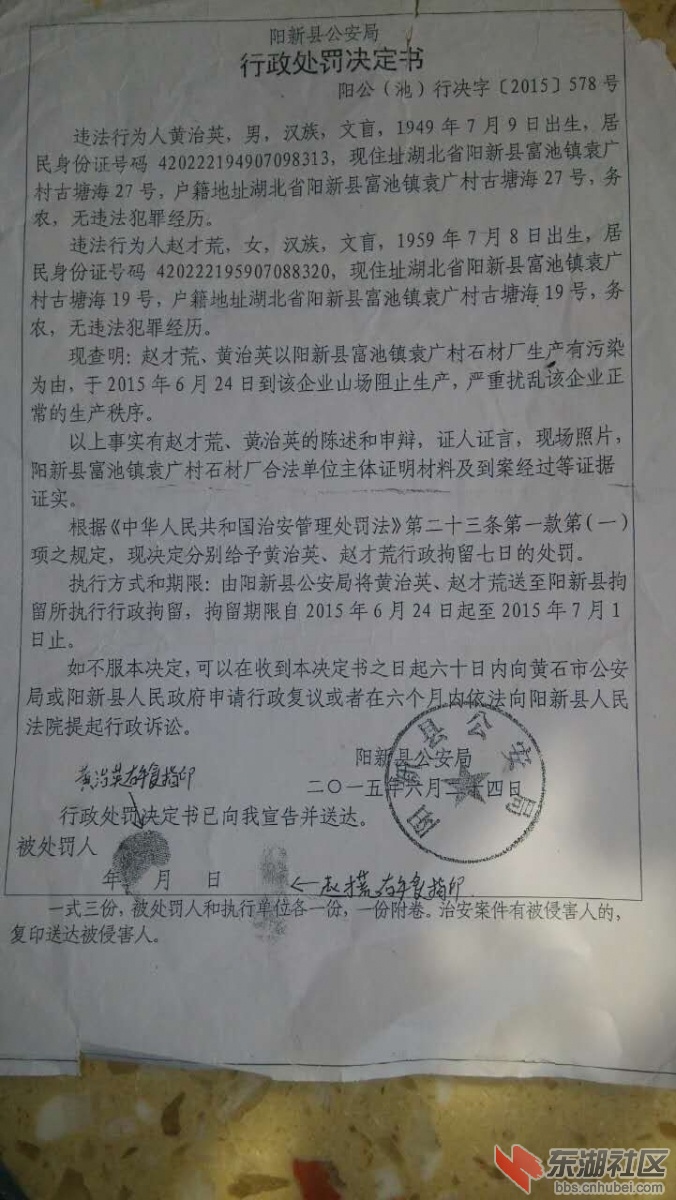 阳新县公安局
行政处罚决定书
阳公（池）行决字〔2015〕578 号
违法行为人黄治英，男，汉族，文盲，1949 年 7 月 9 日出生，居
民身份证号码 420222194907098313，现住址湖北省阳新县富池镇袁广
村古塘海 27 号，户籍地址湖北省阳新县富池镇袁广村古塘海 27 号，务
农，无违法犯罪经历。
违法行为人赵才荒，女，汉族，文盲，1959 年 7 月 8 日出生，居
民身份证号码 420222195907088320，现住址湖北省阳新县富池镇袁广
村古塘海 19 号，户籍地址湖北省阳新县富池镇袁广村古塘海 19 号，务
农，无违法犯罪经历。
现查明：赵才荒、黄治英以阳新县富池镇袁广村石材厂生产有污染
为由，于 2015 年 6 月 24 日到该企业山场阻止生产，严重扰乱该企业正
常的生产秩序。
以上事实有赵才荒、黄治英的陈述和申辩，证人证言，现场照片，
阳新县富池镇袁广村石材厂合法单位主体证明材料及到案经过等证据
证实。
根据《中华人民共和国治安管理处罚法》第二十三条第一款第（一）
项之规定，现决定分别给予黄治英、赵才荒行政拘留七日的处罚。
执行方式和期限：由阳新县公安局将黄治英、赵才荒送至阳新县拘
留所执行行政拘留，拘留期限自 2015 年 6 月 24 日起至 2015 年 7 月 1
日止。
如不服本决定，可以在收到本决定书之日起六十日内向黄石市公安
局或阳新县人民政府申请行政复议或者在六个月内依法向阳新县人民
法院提起行政诉讼。
阳新县公安局
阳新县公安局
二〇一五年六月二十四日
黄治英右手食指印
行政处罚决定书已向我宣告并送达。
被处罚人
年 月 日
←赵才荒右手食指印
一式三份，被处罚人和执行单位各一份，一份附卷。治安案件有被侵害人的，
复印送达被侵害人。
东湖社区
bbs.cnhubei.com